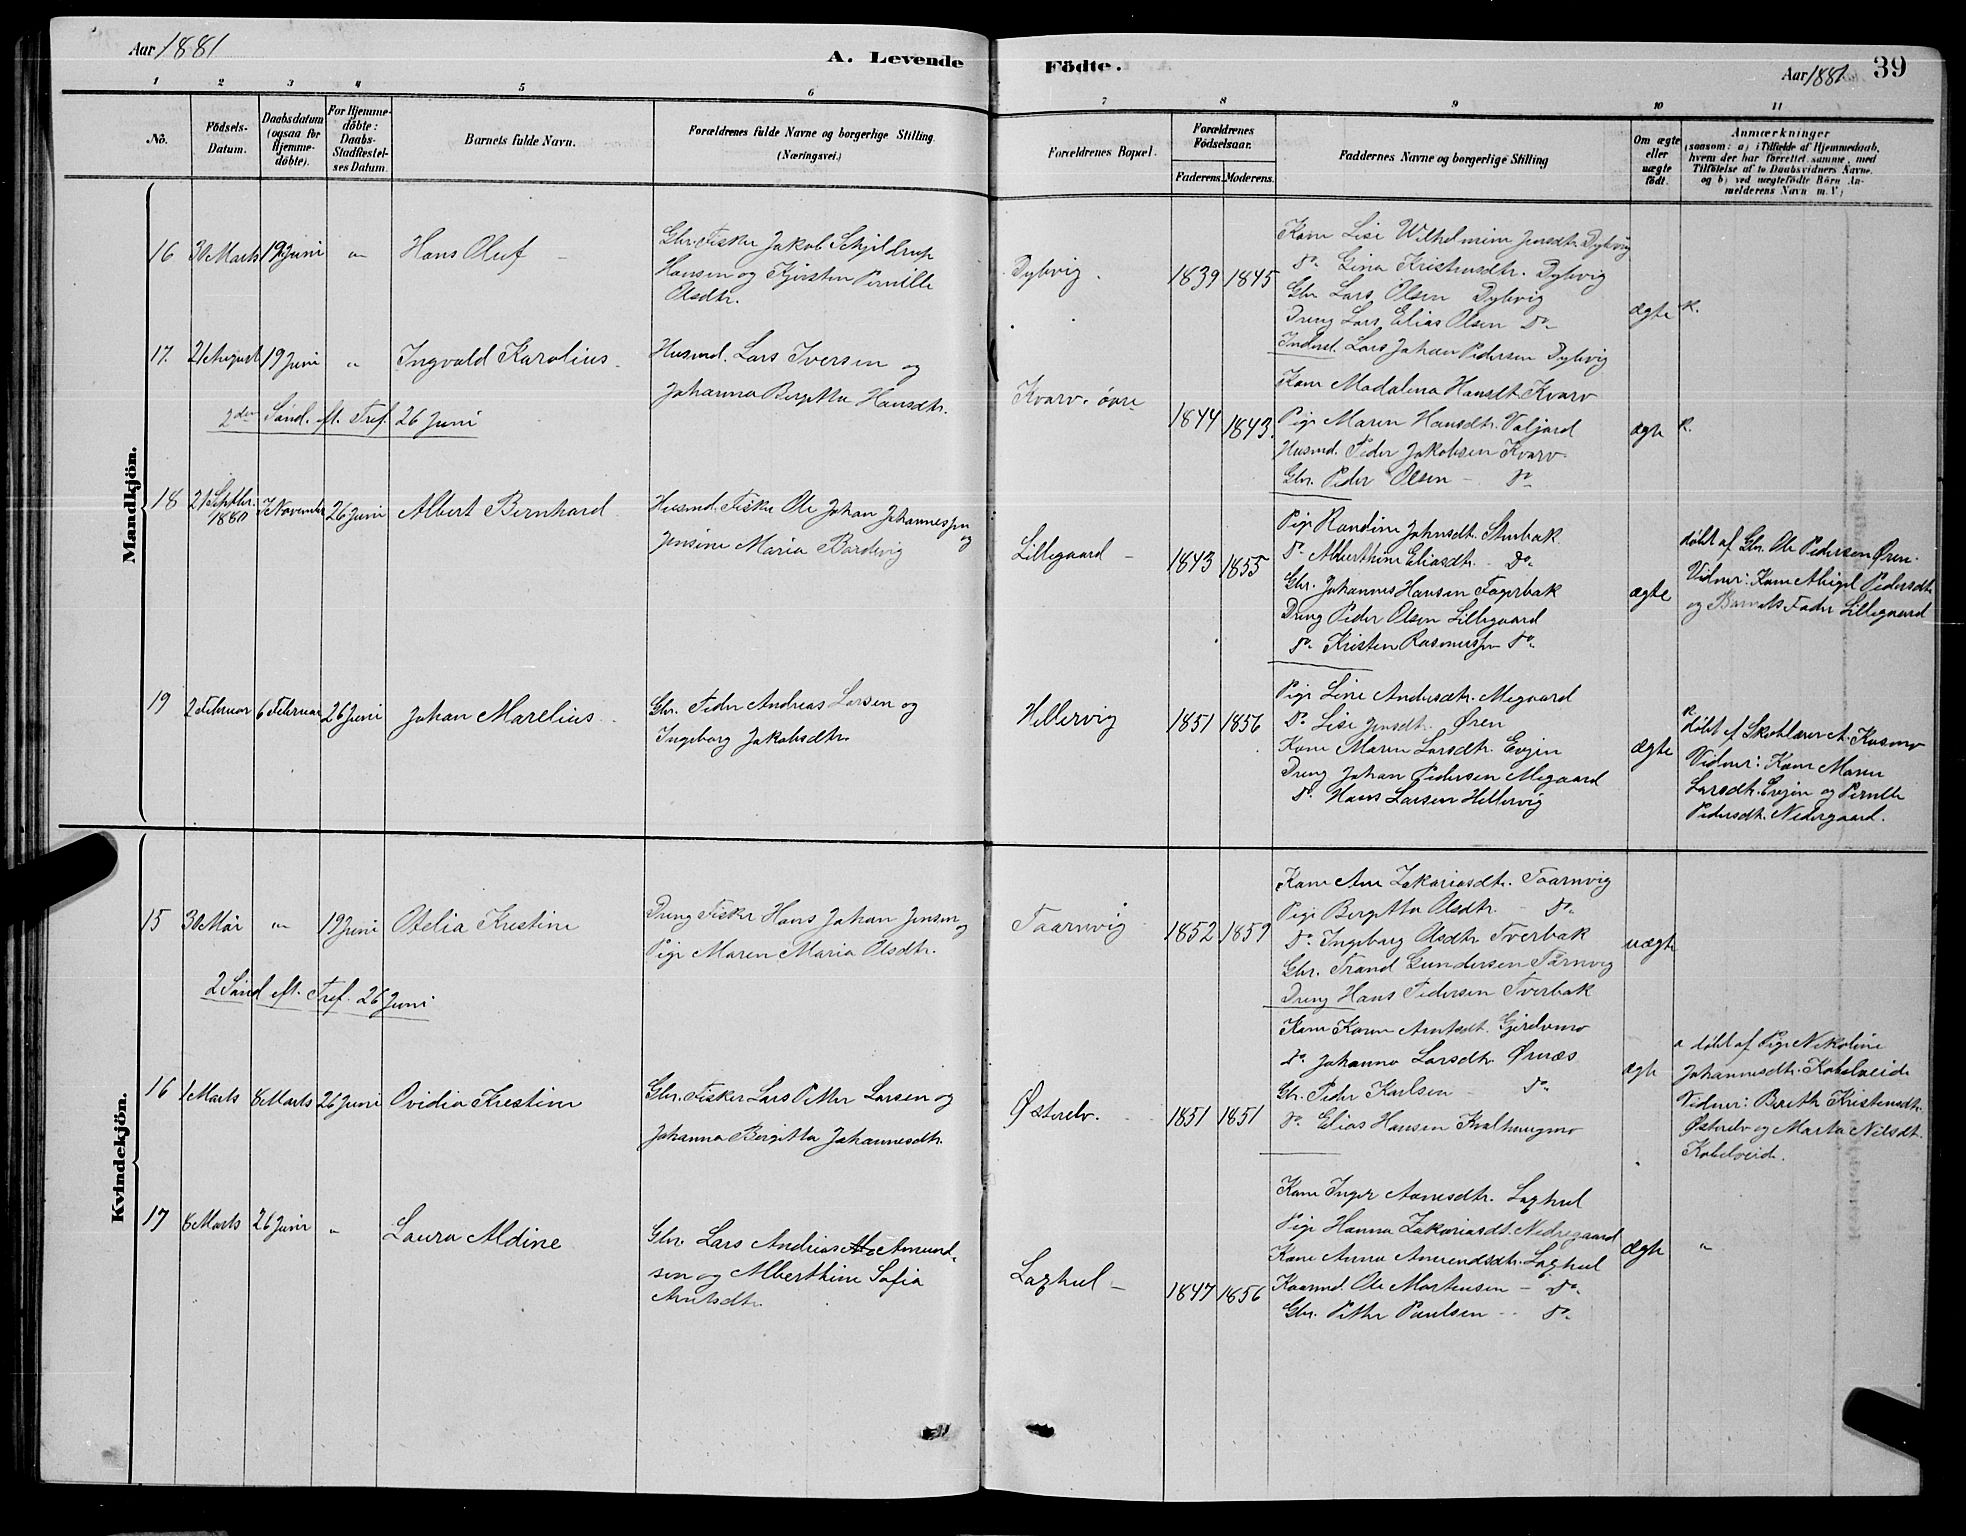 Aar 1881
A. Levende
1 2 3 4 5 6
No.
Födsels-
Datum.
Daabsdatum
(ogsaa for
Hjemme-
döbte).
For Hjemme-
döbte:
Daabs-
Stadfæstel-
ses Datum.
Barnets fulde Navn.
Forældrenes fulde Navne og borgerlige Stilling
(Næringsvei.)
Mandkjön.
16 30 Marts 19 Juni " Hans Oluf
Gbr. Fisker Jakob Schjeldrup
Hansen og Kjersten Pernille
Olsdtr.
17. 21 August 19 Juni " Ingvald Karolius
Husmd. Lars Iversen og
Johanna Bergitta Hansdtr.
2den Sönd. ef. Tref. 26 Juni
18 21 Septbr. 1880 7 November 26 Juni Albert Bernhard
Husmd. Fisker Ole Johan Johannessen og
Jensine Maria Bardvig
19 2 Februar 6 Februar 26 Juni Johan Marelius
Gbr. Peder Andreas Larsen og
Ingeborg Jakobsdtr.
Kvindekjön.
15 30 Mai " 19 Juni Otelia Kristine
Dreng Fisker Hans Johan Jensen og
Pige Maren Maria Olsdtr.
2 Sönd eft. Tref. 26 Juni
16 1 Marts 8 Marts 26 Juni Ovidia Kristine
Gbr. Fisker Lars Petter Larsen og
Johanna Bergitta Johannesdtr.
17 8 Marts 26 Juni " Laura Aldine
Gbr. Lars Andreas Amund-
sen og Alberthine Sofia
Arntsdtr.
Födte.
Aar 1881
39
7 8 9 10 11
Forældrenes Bopæl.
Forældrenes
Födselsaar.
Faderens. Moderens.
Faddernes Navne og borgerlige Stilling
Om ægte
eller
uægte
födt.
Anmærkninger
(saasom: a) i Tilfælde af Hjemmedaab,
hvem der har forrettet samme, med
Tilföielse af to Daabsvidners Navne.
og b) ved uægtefödte Börn An-
melderens Navn m. V.)
Dybvig. 1839 1845
Kone Lise Wilhelmine Jensdtr. Dybvig
Do. Gina Kristensdtr. Dybvig
Gbr. Lars Olsen Dybvig
Dreng Lars Elias Olsen Do.
Inderst. Lars Johan Pedersen Dybvig
ægte
Kvarv. övre 1844 1843
Kone Madalena Hansdt. Kvarv
Pige Maren Hansdtr. Valjord
Husmd. Peder Jakobsen Kvarv
Gbr. Peder Olsen - Do.
ægte
Lillegaard 1843 1855
Pige Randine Johnsdt. Stenbak
Do. Alberthine Eliasdtr. - Do.
Gbr. Johannes Hansen Fagerbak
Dreng Peder Olsen Lillegaard
Do. Kristen Rasmussen Do.
ægte
döbt af Gbr. Ole Pedersen Øren.
Vidner: Kone Abigel Pedersdt.
og Barnets Fader Lillegaard
Hellervig 1851 1856
Pige Line Andersdtr. Megaard
Do. Lise Jensdt. Øren
Kone Maren Larsdtr. Evjen
Dreng Johan Pedersen Megaard
Do. Hans Larsen Hellervig
ægte
döbt af Skolelærer A. Kosmo
Vidner: Kone Maren
Larsdtr. Evjen og Pernille
Pedersdt. Nedergaard.
Taarnvig 1852 1859
Kone Ane Zakariasdtr. Taarnvig
Pige Bergitta Olsdtr. - Do.
Do. Ingeborg Olsdtr. Tverbak
Gbr. Trand Gundersen Tårnvig
Dreng Hans Pedersen Tverbak
uægte
Østerelv. 1851 1851
Kone Karen Arntsdt. Gjerelvmo
Do. Johanna Larsdtr. Ørnæs
Gbr. Peder Karlsen - Do.
Do. Elias Hansen Kvalhaugmo
ægte
döbt af Pige Nikoline
Johannesdtr. Kobelveide
Vidner: Berith Kristensdtr.
Østerelv og Marta Nilsdt.
Kobelveid.
Laghul 1847 1856
Kone Inger Aanesdtr. Laghul
Pige Hanna Zakariasdt. Nedregaard
Kone Anna Amundsdtr. Laghul
Kaarmd. Ole Mortensen - Do.
Gbr. Petter Paulsen - Do.
ægte "